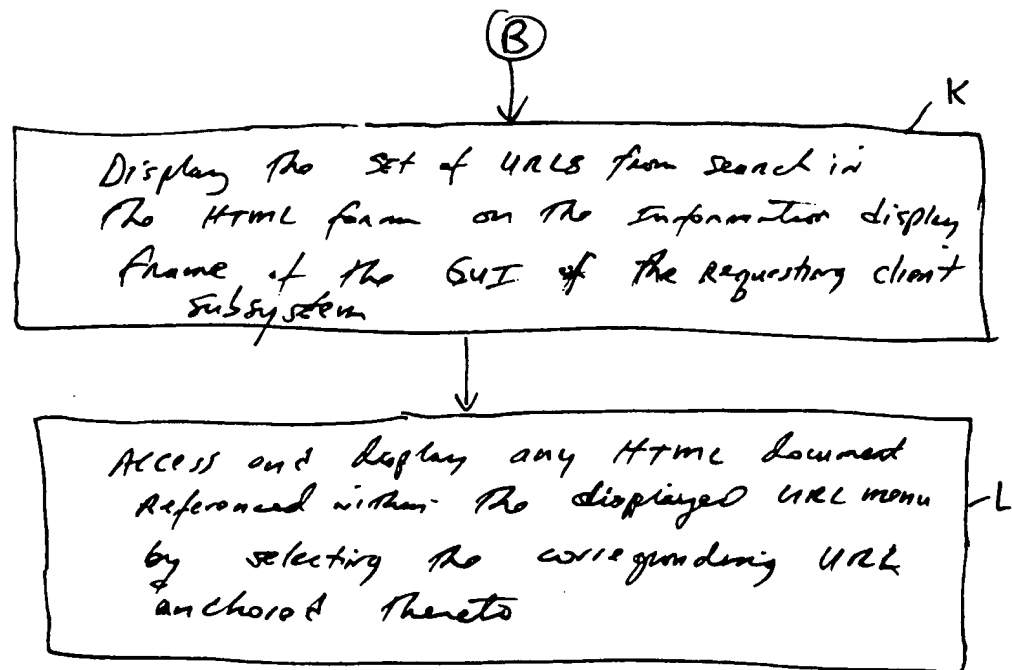 B
K
Display the set of URLs from search in
the HTML form on the Information display
frame of the GUI of the Requesting client
subsystem
Access and display any HTML document
Referenced within the displayed URL menu
L
by selecting the corresponding URL
& anchored thereto